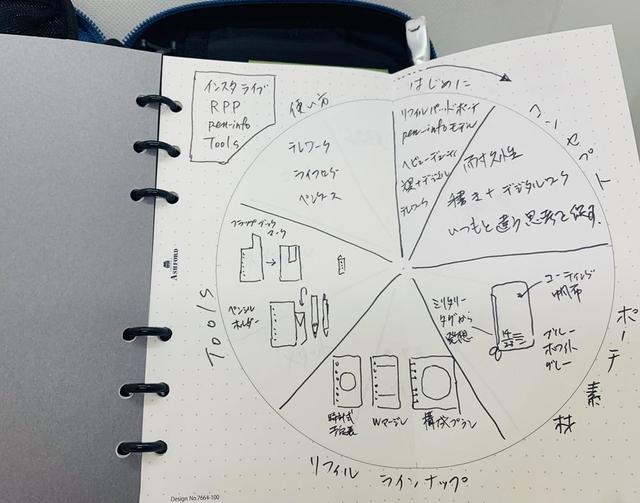 インスタライブ
RPP
pen-info
Tools
はじめに
リフィルパッドポーチ
pen-infoモデル
ヘビーデューティ
テレワーク
コンセプト
耐久性
積ミ+デジタルワーク
いつもと違う思考を
ポーチ素材
コーティング
帆布
ミリタリー
タグから
発想
ブルー
ホワイト
グレー
リフィル ラインナップ
時計式
予定表
Wマージン
構成プラン
Tools
フラップブック
マーク
ペンシル
ホルダー
使い方
テレワーク
ライフログ
ASHFORD
Design No.7664-100